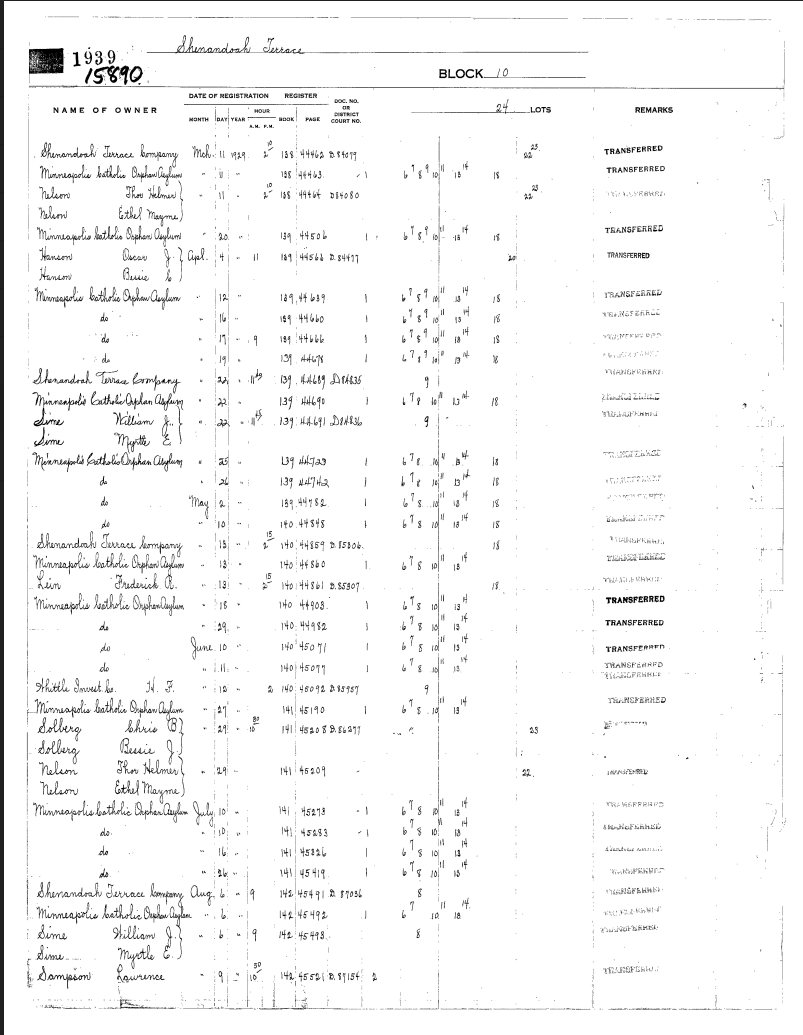 Shenandoah Terrace
1939
15890
BLOCK 10
DATE OF REGISTRATION REGISTER DOC. NO. OR DISTRICT COURT NO. 24 LOTS REMARKS
NAME OF OWNER MONTH DAY YEAR HOUR A.M. P.M. BOOK PAGE
Shenandoah Terrace Company Mch. 11 1929 2 10 138 44462 D.84079 22 23 TRANSFERRED
Minneapolis Catholic Orphan Asylum " 11 " 138 44463 1 6 7 8 9 10 11 13 14 18 TRANSFERRED
Nelson Thor Helmer } " 11 " 2 10 138 44464 D84080 22 23 TRANSFERRED
Nelson Ethel Mayme }
Minneapolis Catholic Orphan Asylum " 20 " 139 44506 1 6 7 8 9 10 11 13 14 18 TRANSFERRED
Hanson Oscar J. } Apl. 4 " 11 139 44563 D.84477 20 TRANSFERRED
Hanson Bessie C }
Minneapolis Catholic Orphan Asylum " 12 " 139 44639 1 6 7 8 9 10 11 13 14 18 TRANSFERRED
do " 16 " 139 44660 1 6 7 8 9 10 11 13 14 18 TRANSFERRED
do " 17 " 9 139 44666 1 6 7 8 9 10 11 13 14 18 TRANSFERRED
do " 19 " 139 44678 1 6 7 8 9 10 11 13 14 18 TRANSFERRED
Shenandoah Terrace Company " 22 " 11 45 139 44689 D84835 9 TRANSFERRED
Minneapolis Catholic Orphan Asylum " 22 " 139 44690 1 6 7 8 10 11 13 14 18 TRANSFERRED
Sime William J. } " 22 " 11 45 139 44691 D84836 9 TRANSFERRED
Sime Myrtle E. }
Minneapolis Catholic Orphan Asylum " 25 " 139 44723 1 6 7 8 10 11 13 14 18 TRANSFERRED
do " 26 " 139 44742 1 6 7 8 10 11 13 14 18 TRANSFERRED
do May 2 " 139 44782 1 6 7 8 10 11 13 14 18 TRANSFERRED
do " 10 " 140 44848 1 6 7 8 10 11 13 14 18 TRANSFERRED
Shenandoah Terrace Company " 13 " 2 15 140 44859 D.85306 18 TRANSFERRED
Minneapolis Catholic Orphan Asylum " 13 " 140 44860 1 6 7 8 10 11 13 14 TRANSFERRED
Lein Frederick R. " 13 " 2 15 140 44861 D.85307 18 TRANSFERRED
Minneapolis Catholic Orphan Asylum " 18 " 140 44903 1 6 7 8 10 11 13 14 TRANSFERRED
do " 29 " 140 44982 1 6 7 8 10 11 13 14 TRANSFERRED
do June 10 " 140 45071 1 6 7 8 10 11 13 14 TRANSFERRED
do " 11 " 140 45077 1 6 7 8 10 11 13 14 TRANSFERRED
TRANSFERRED
Whittle Invest. Co. H. F. " 12 " 2 140 45092 D.85957 9
Minneapolis Catholic Orphan Asylum " 27 " 141 45190 1 6 7 8 10 11 13 14 TRANSFERRED
Solberg Chris B } " 29 " 10 30 141 45208 D.86277 23
Solberg Bessie J. }
Nelson Thor Helmer } " 29 " 141 45209 22 TRANSFERRED
Nelson Ethel Mayme }
Minneapolis Catholic Orphan Asylum July 10 " 141 45273 1 6 7 8 10 11 13 14 TRANSFERRED
do " 10 " 141 45283 1 6 7 8 10 11 13 14 TRANSFERRED
do " 16 " 141 45326 1 6 7 8 10 11 13 14 TRANSFERRED
do " 26 " 141 45419 1 6 7 8 10 11 13 14 TRANSFERRED
Shenandoah Terrace Company Aug. 6 " 9 142 45491 D.87036 8 TRANSFERRED
Minneapolis Catholic Orphan Asylum " 6 " 142 45492 1 6 7 10 11 13 14 TRANSFERRED
Sime William J. } " 6 " 9 142 45493 8 TRANSFERRED
Sime Myrtle E. }
Sampson Lawrence " 9 " 10 50 142 45521 D.87154 2 TRANSFERRED